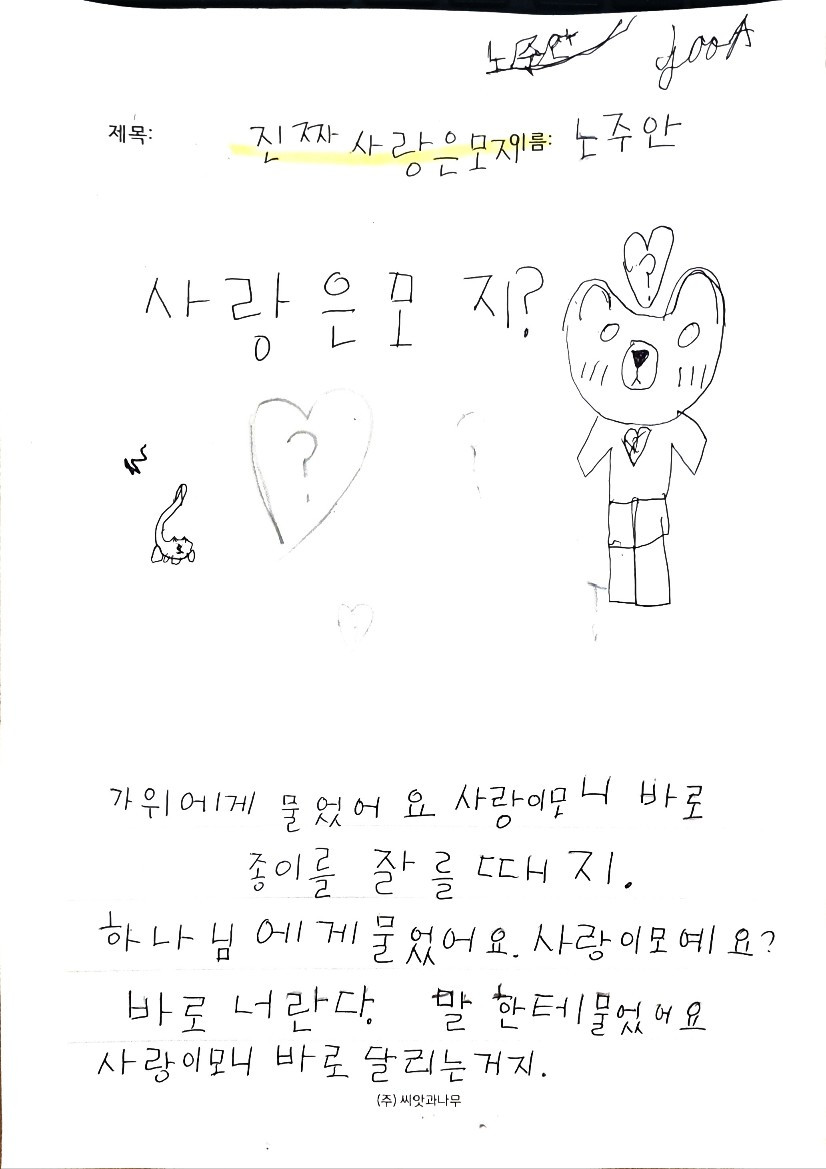 노주안 JooA
제목: 진짜 사랑은모지 이름: 노주안
사랑은모 지?
?
?
?
가위에게 물었어요 사랑이모니 바로
종이를 잘를때지.
하나님에게물었어요. 사랑이모예요?
바로 너란다. 말한테물었어요
사랑이모니 바로 달리는거지.
(주) 씨앗과나무